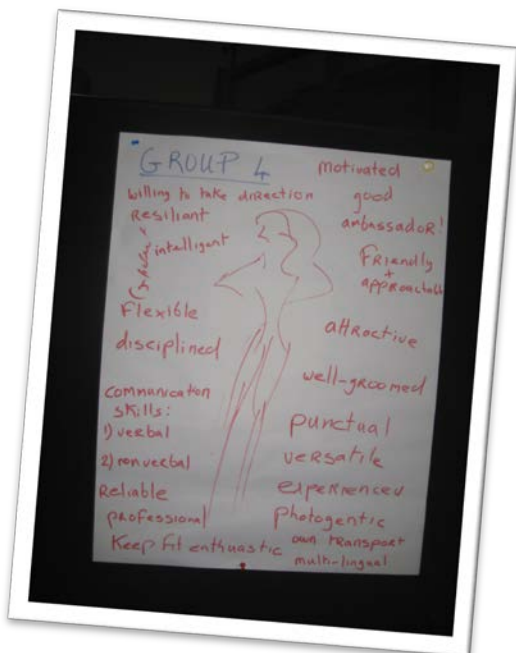 GROUP 4
willing to take direction
Resiliant
+
intelligent
Flexible
disciplined
Communication
skills:
1) verbal
2) nonverbal
Reliable
professional
Keep fit enthuastic
motivated
good
ambassador!
Friendly
+
approachable
attractive
well-groomed
punctual
versatile
experienced
photogentic
own transport
multi-lingual